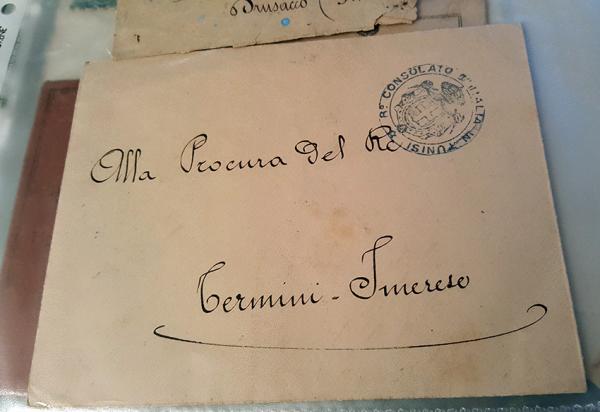 Brusacco
R° CONSOLATO D'ITALIA IN TUNISI
Alla Procura del Re
Termini - Imerese